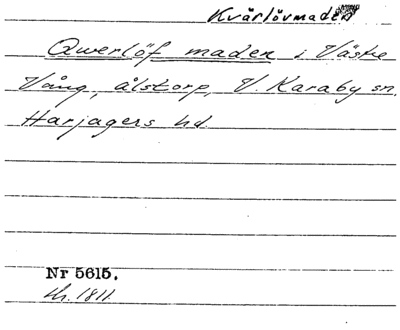 Kvärlövmaden
Qwerlöf maden i Västre
Vång, ålstorp, V. Karaby sn.
Harjagers hd.
Nr 5615.
Kr. 1811.